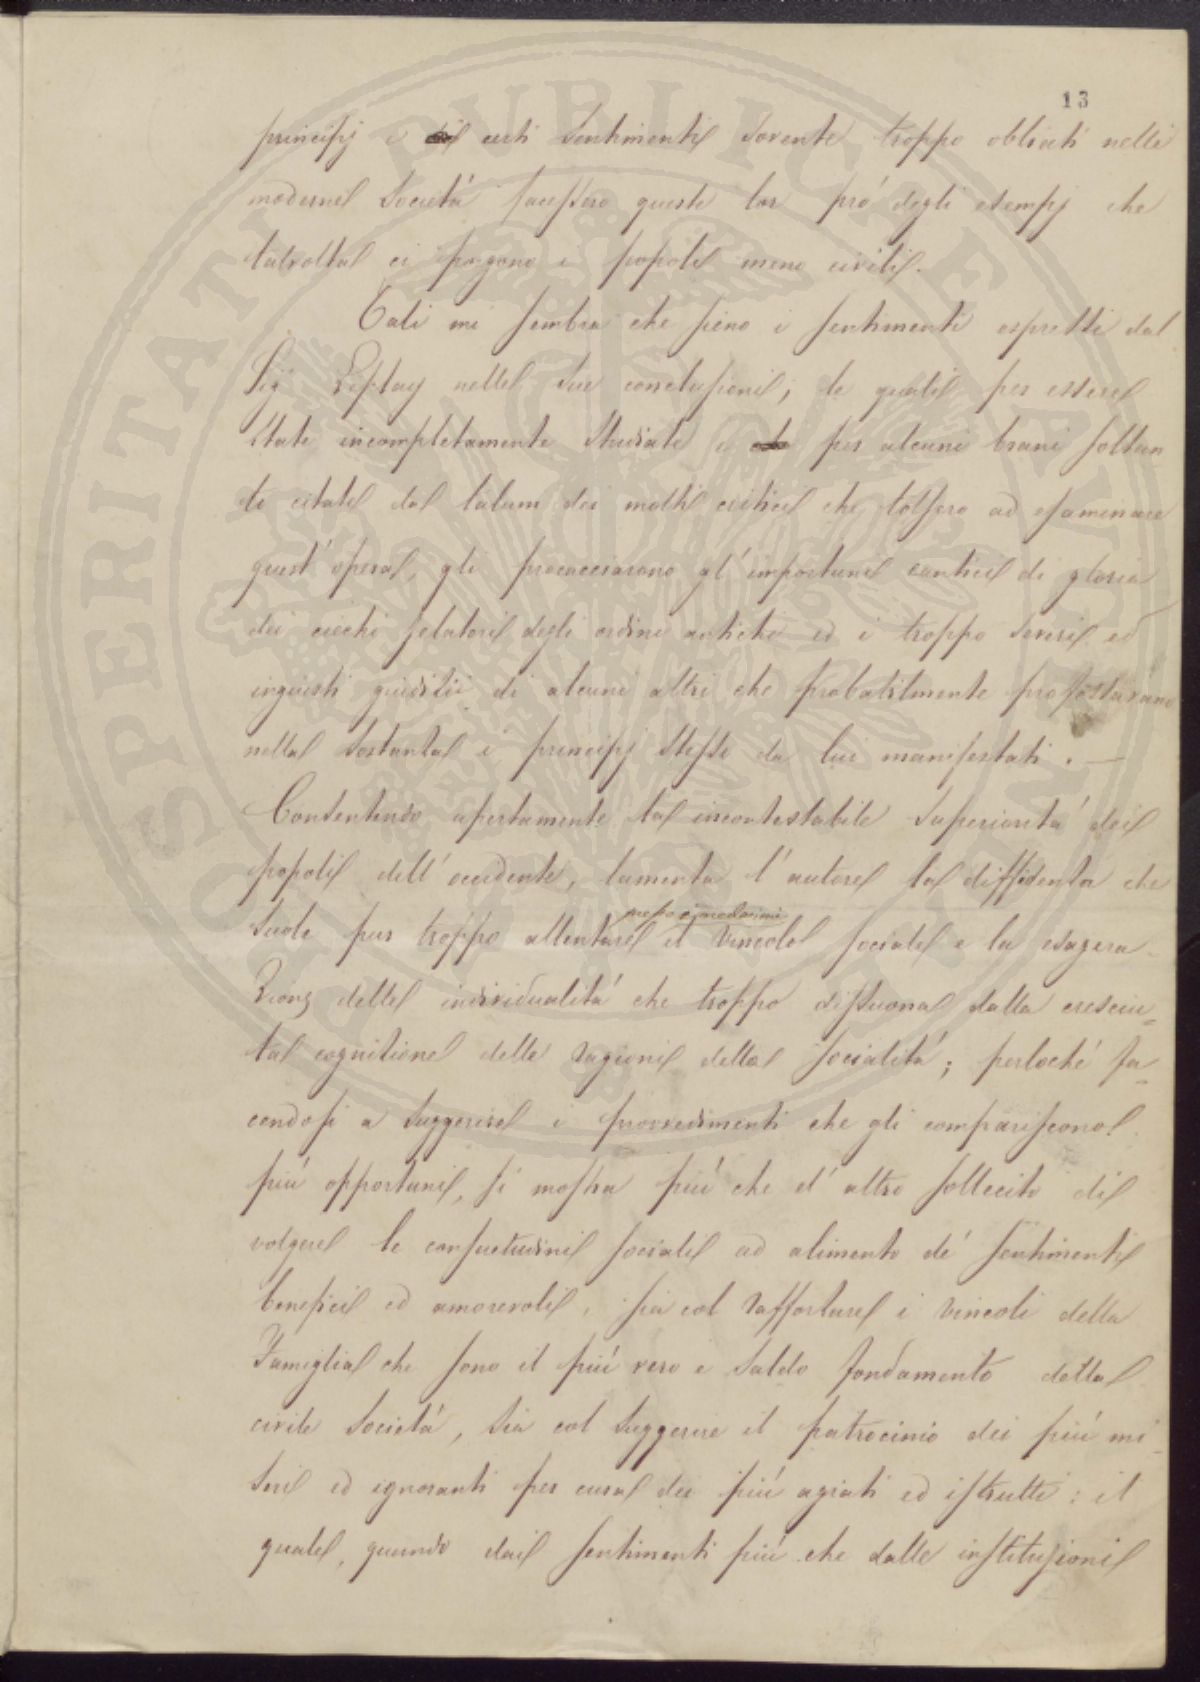 13
principj e di certi sentimenti sovente troppo obliati nelle
moderne Società facessero queste lor pró degli esempj che
talvolta ci porgono i popoli meno civili.
Tali mi sembra che sieno i sentimenti espressi dal
Sig. Leplay nelle sue conclusioni; le quali per essere
state incompletamente studiate e per alcuni brani soltan-
to citate dal talun dei molti critici che tolsero ad esaminare
quest'opera, gli procacciarono gl'importuni cantici di gloria
dei ciechi zelatori degli ordini antichi ed i troppo severi ed
ingiusti giudizii di alcuni altri che probabilmente professavano
nella sostanza i principj stessi da lui manifestati. —
Consentendo apertamente la incontestabile superiorità dei
popoli dell'occidente, lamenta l'autore la diffidenza che
suole pur troppo allentare il vincolo sociale e la esagera-
zione delle individualità che troppo dissuona dalla cresciu-
ta cognizione delle ragioni della socialità; perloché fa-
cendosi a suggerire i provvedimenti che gli compariscono
più opportuni, si mostra più che d'altro sollecito di
volgere le consuetudini sociali ad alimento de' sentimenti
benefici ed amorevoli, sia col rafforzare i vincoli della
Famiglia che sono il più vero e saldo fondamento della
civile Società, sia col suggerire il patrocinio dei più mi-
seri ed ignoranti per cura dei più agiati ed istrutti: il
quale, quando dai sentimenti più che dalle instituzioni
PROSPERITATI PVBLICAE AVGENDAE